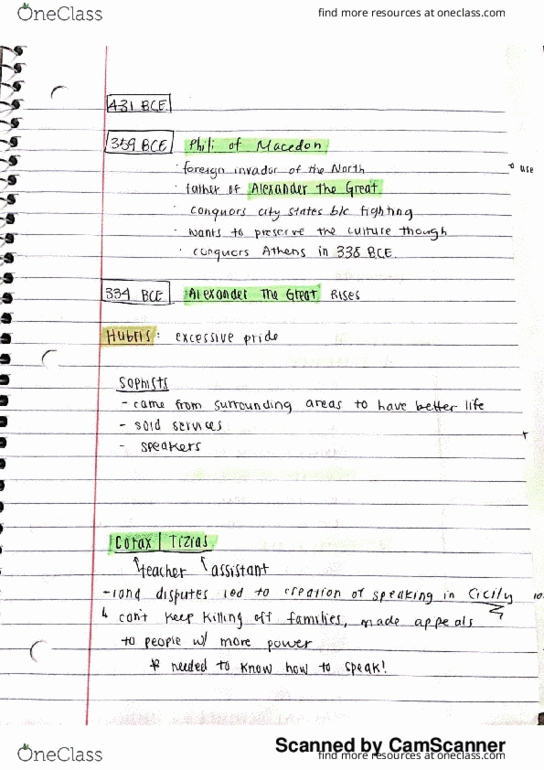 OneClass
find more resources at oneclass.com
431 BCE
359 BCE Phili of Macedon
· foreign invador of the North
use
· father of Alexander the Great
· conquors city states b/c fighting
· wants to preserve the culture though
· conquers Athens in 338 BCE.
334 BCE Alexander The Great Rises
Hubris: excessive pride
Sophists
- came from surrounding areas to have better life
- sold services
- speakers
Corax | Tizias
teacher assistant
- land disputes led to creation of speaking in Cicily
can't keep killing off families, made appeals
to people w/ more power
* needed to know how to speak!
Scanned by CamScanner
OneClass
find more resources at oneclass.com